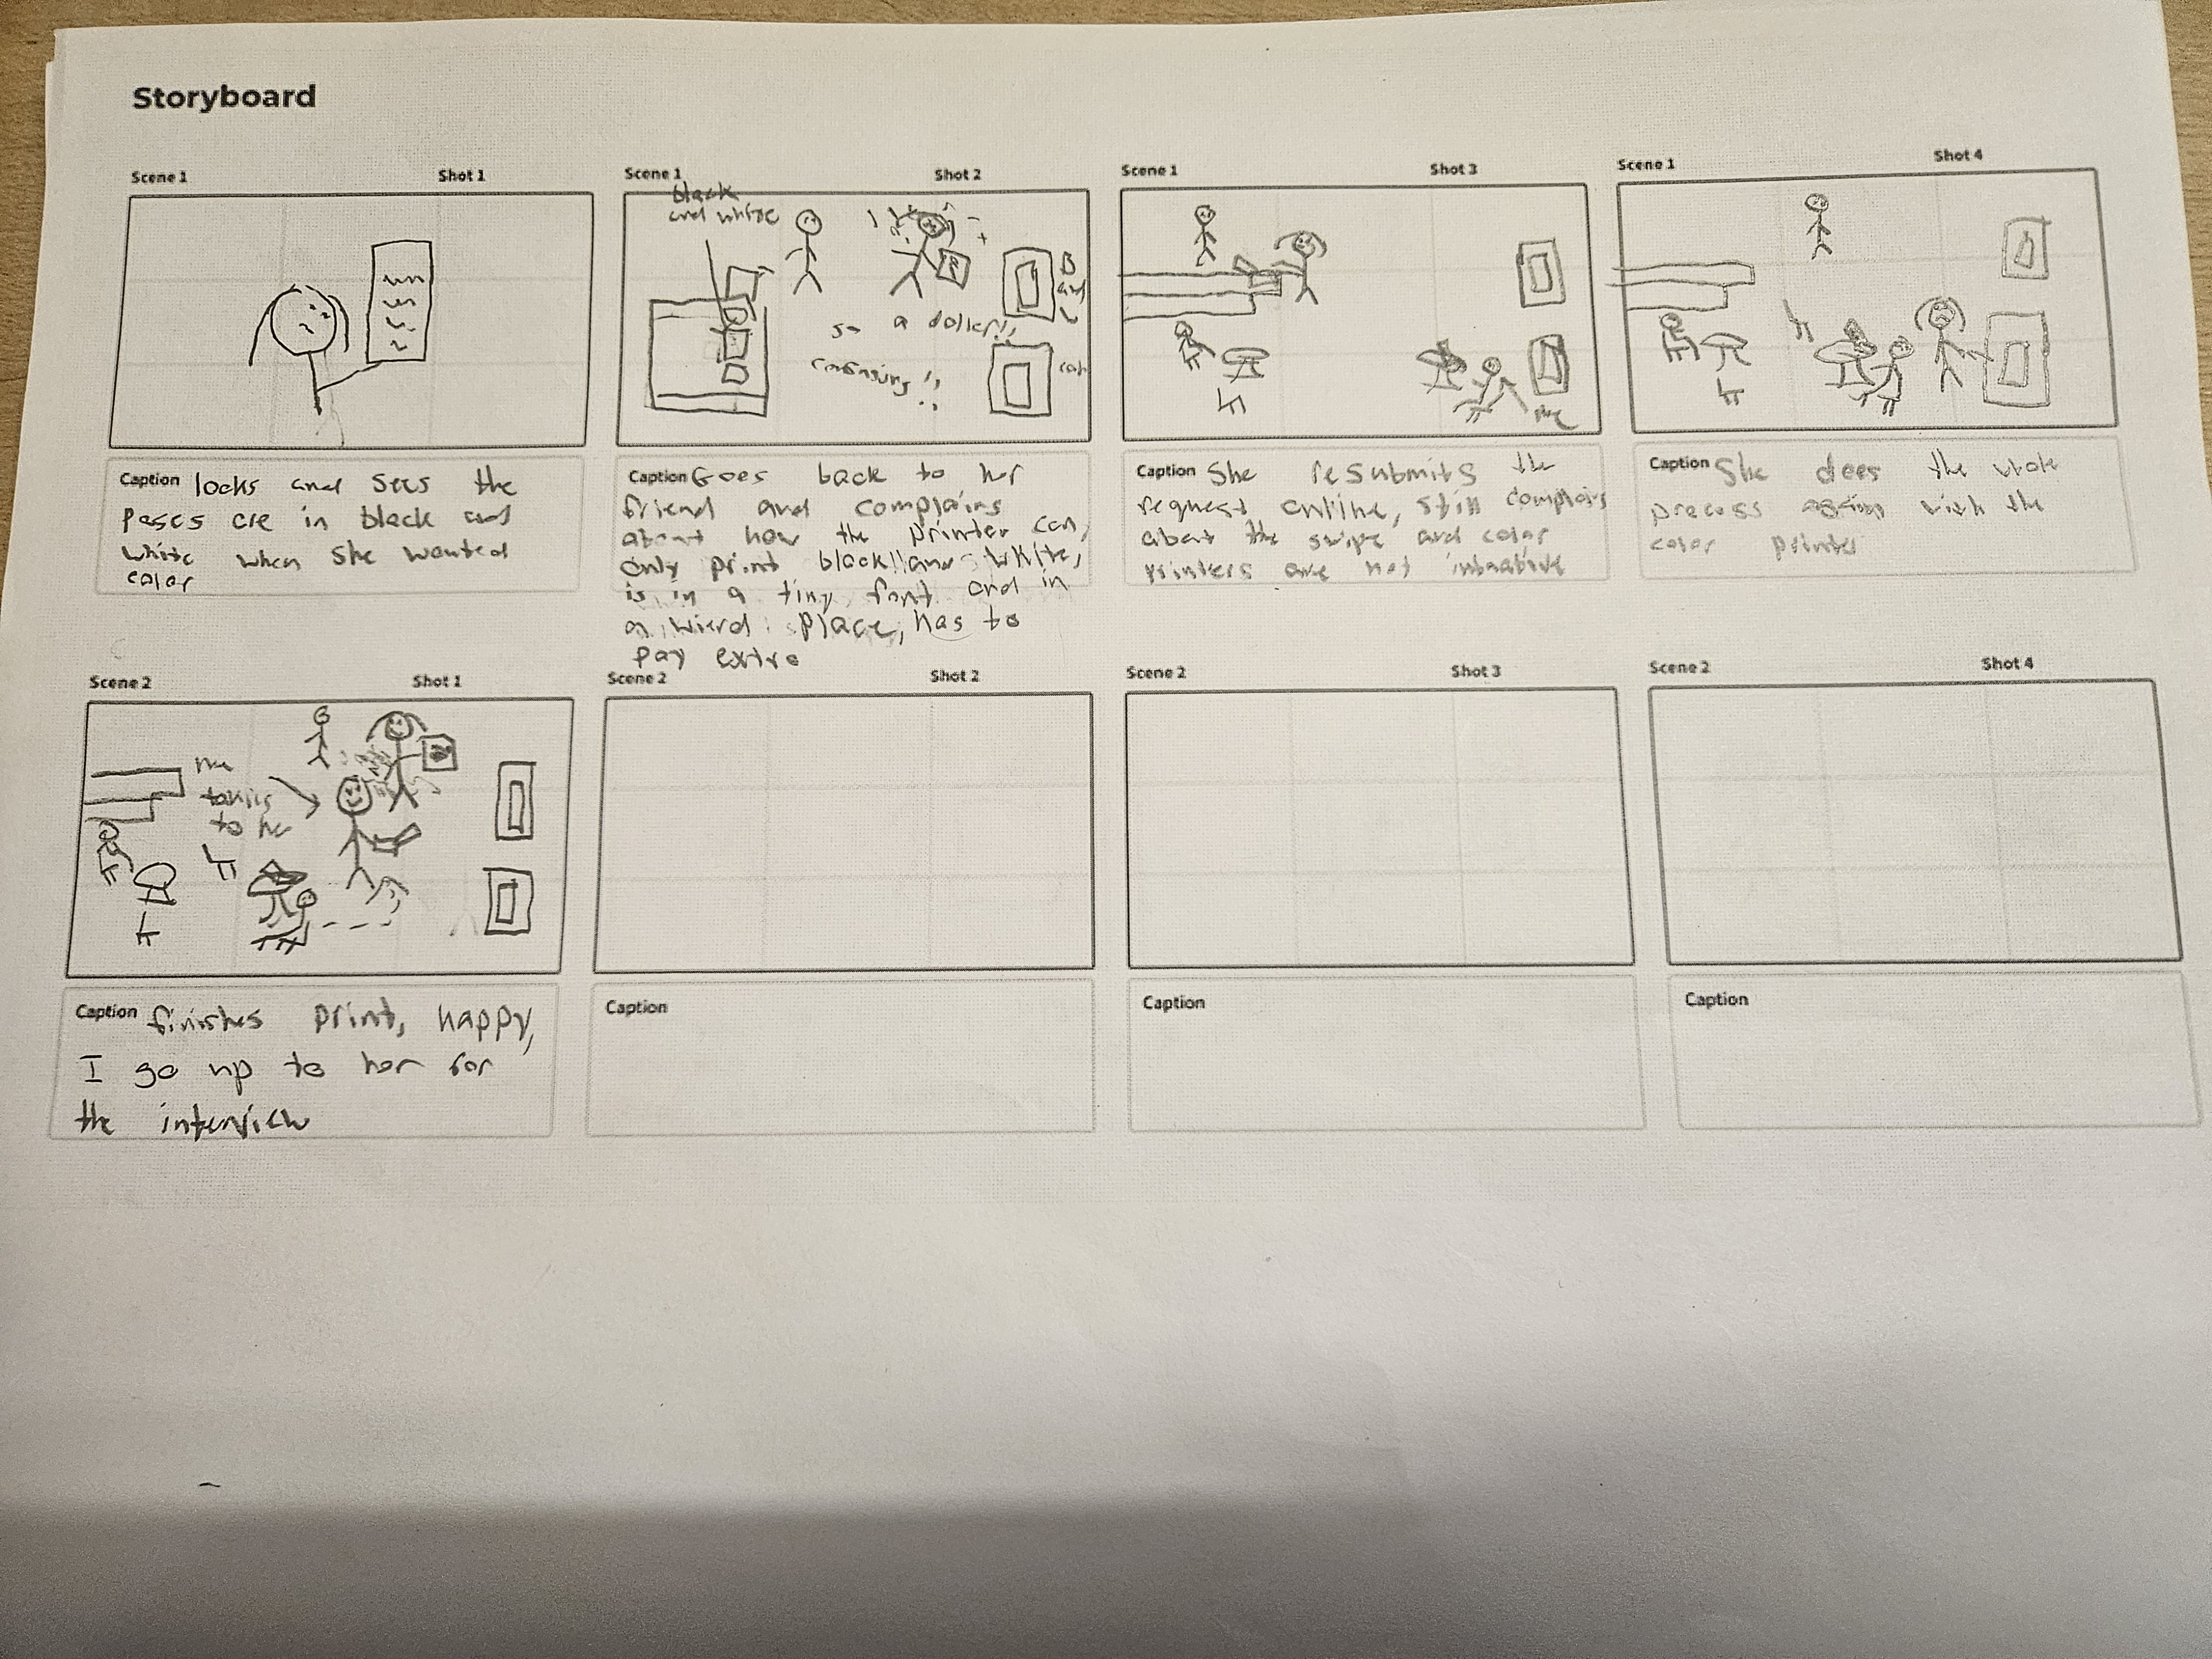 Storyboard
Scene 1 Shot 1
Caption looks and sees the
pages are in black and
white when she wanted
color
Scene 1 Shot 2
black
and white
50 a dollar!!
confusing!!
Caption Goes back to her
friend and complains
about how the printer can,
only print black and white,
is in a tiny font and in
a wierd place, has to
pay extra
Scene 1 Shot 3
me
Caption She resubmits the
request online, still complains
about the swipe and color
printers are not intuative
Scene 1 Shot 4
Caption She does the whole
process again with the
color printer
Scene 2 Shot 1
me
talking
to her
Caption finishes print, happy,
I go up to her for
the interview
Scene 2 Shot 2
Caption
Scene 2 Shot 3
Caption
Scene 2 Shot 4
Caption